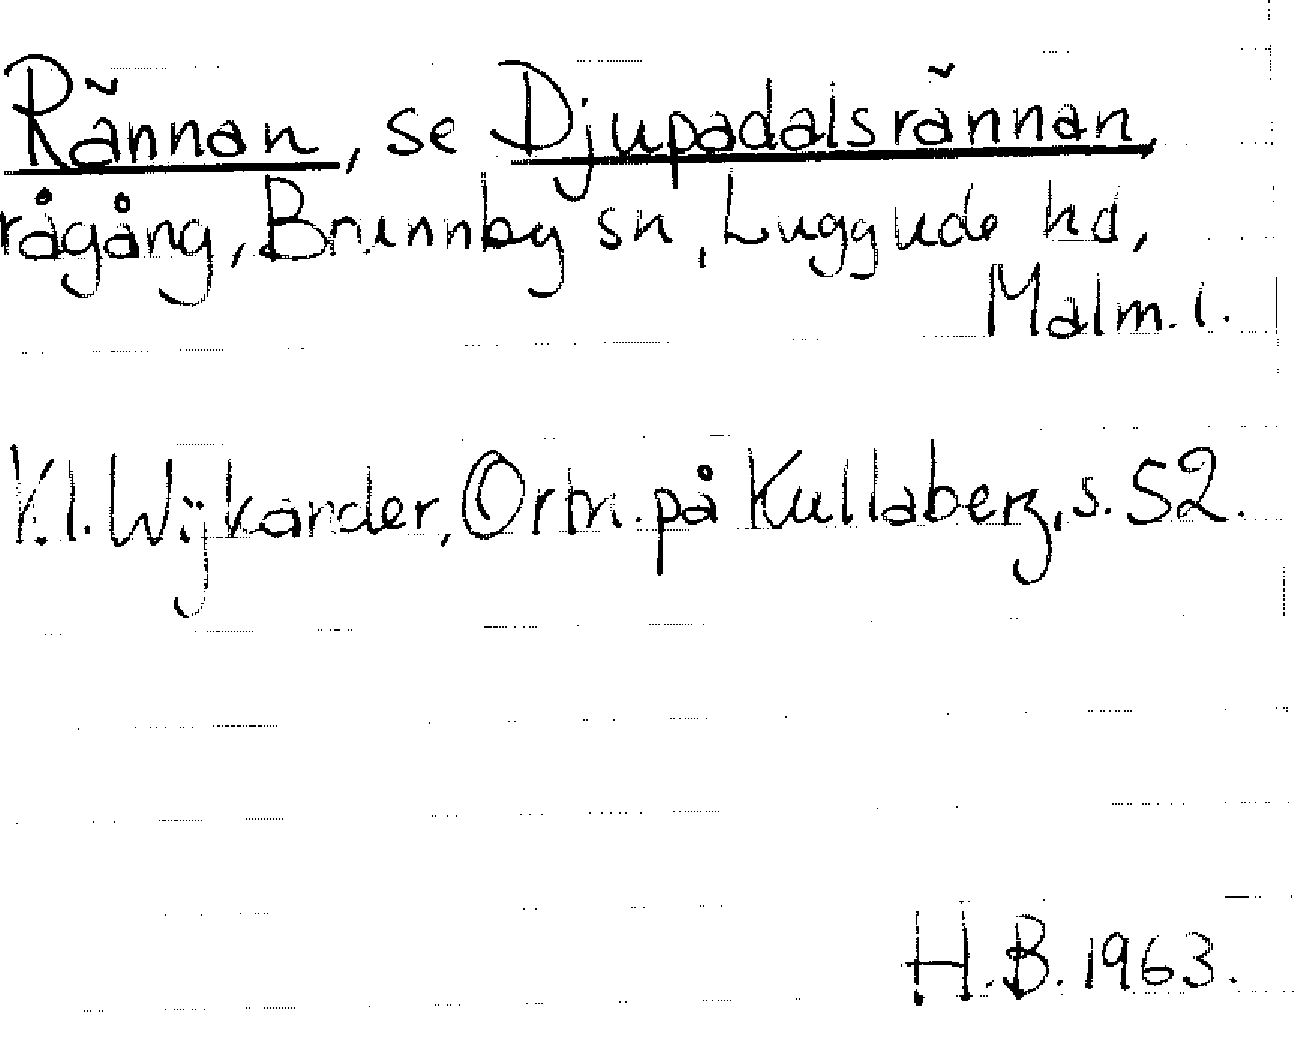 Rännan, se Djupadalsrännan,
rågång, Brunnby sn, Luggude hd,
Malm. l.
V. I. Wijkander, Ortn. på Kullaberg, s. 52.
H. B. 1963.